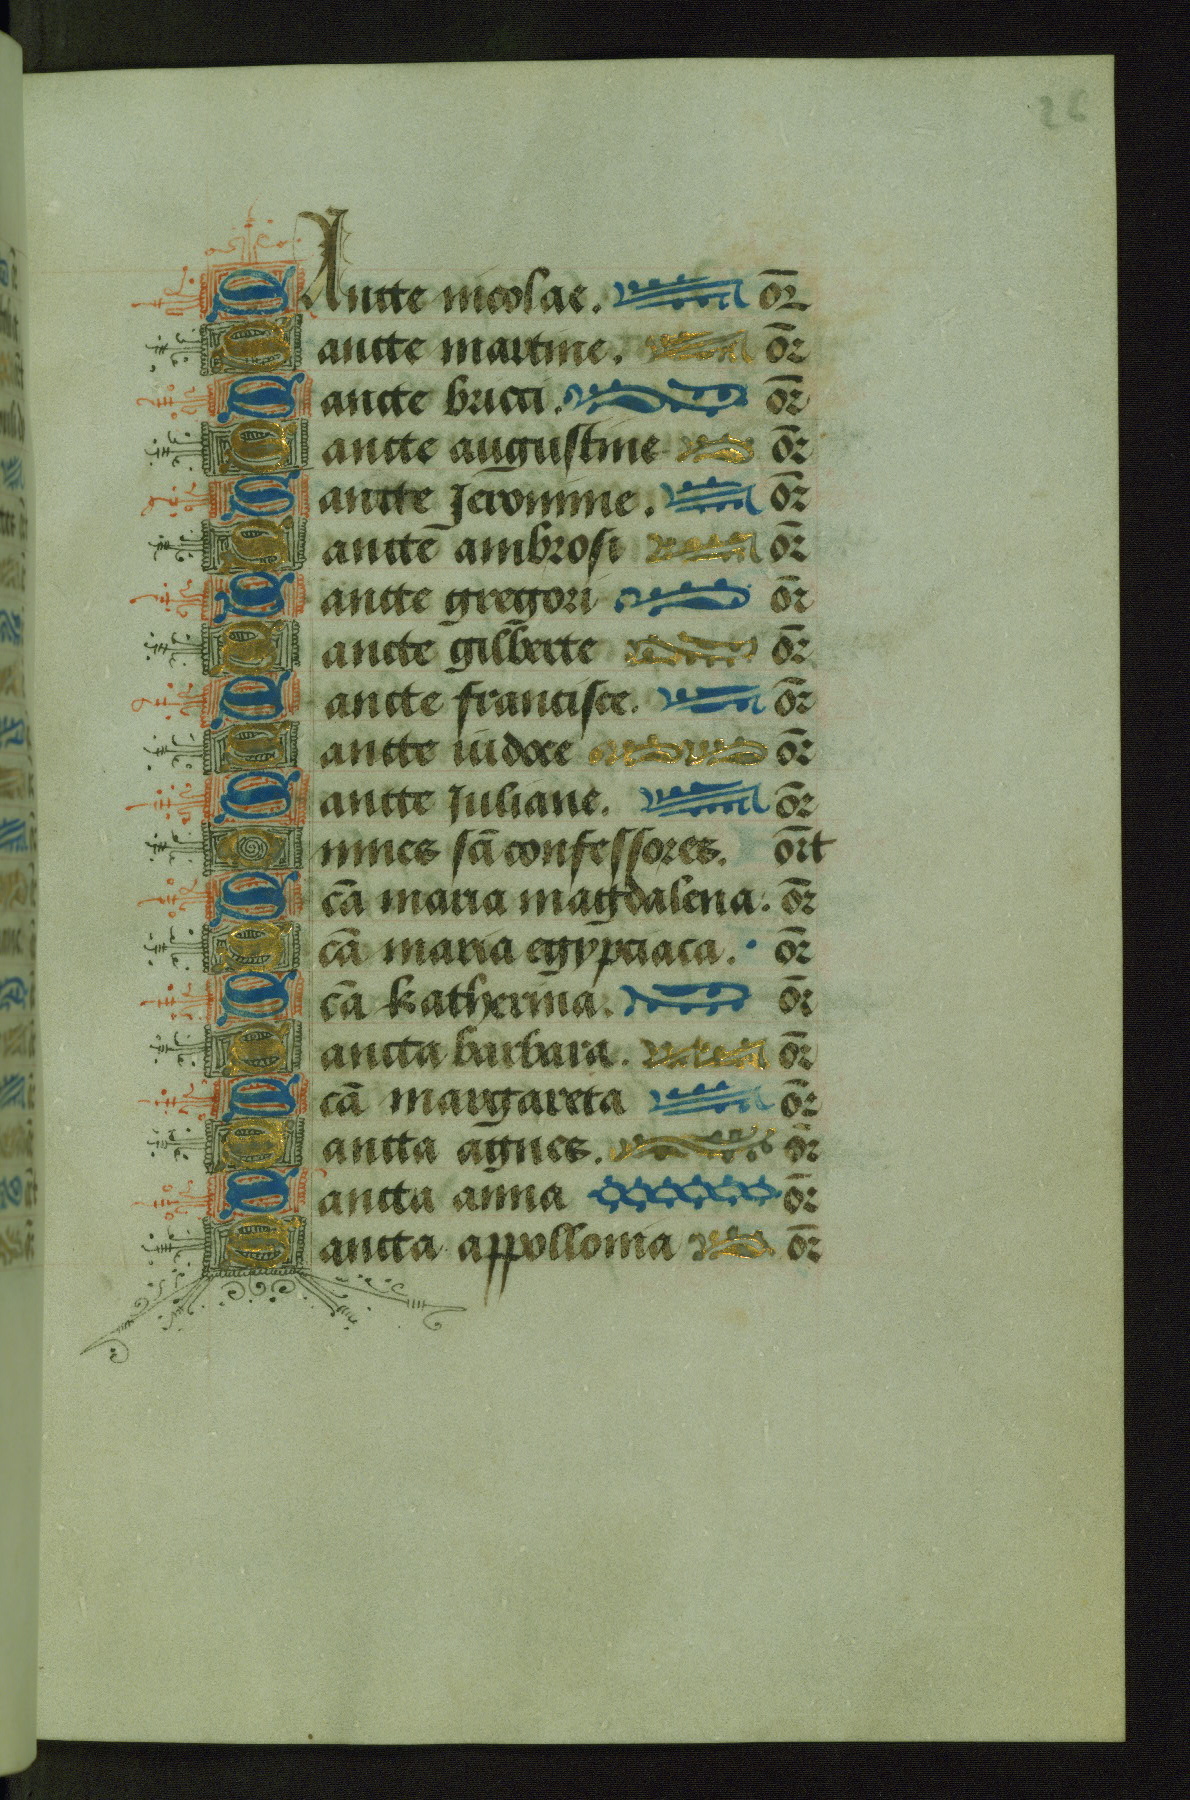 26
Sancte nicolae. or̄
Sancte martine. or̄
Sancte bricci. or̄
Sancte augustine or̄
Sancte Jeronime. or̄
Sancte ambrosi or̄
Sancte gregori or̄
Sancte gilberte or̄
Sancte francisce. or̄
Sancte iudoce or̄
Sancte Juliane. or̄
Omnes sc̄i confessores. or̄t
Sc̄a maria magdalena. or̄
Sc̄a maria egypciaca. or̄
Sc̄a katherina. or̄
Sancta barbara. or̄
Sc̄a margareta or̄
Sancta agnes. or̄
Sancta anna or̄
Sancta appollonia or̄